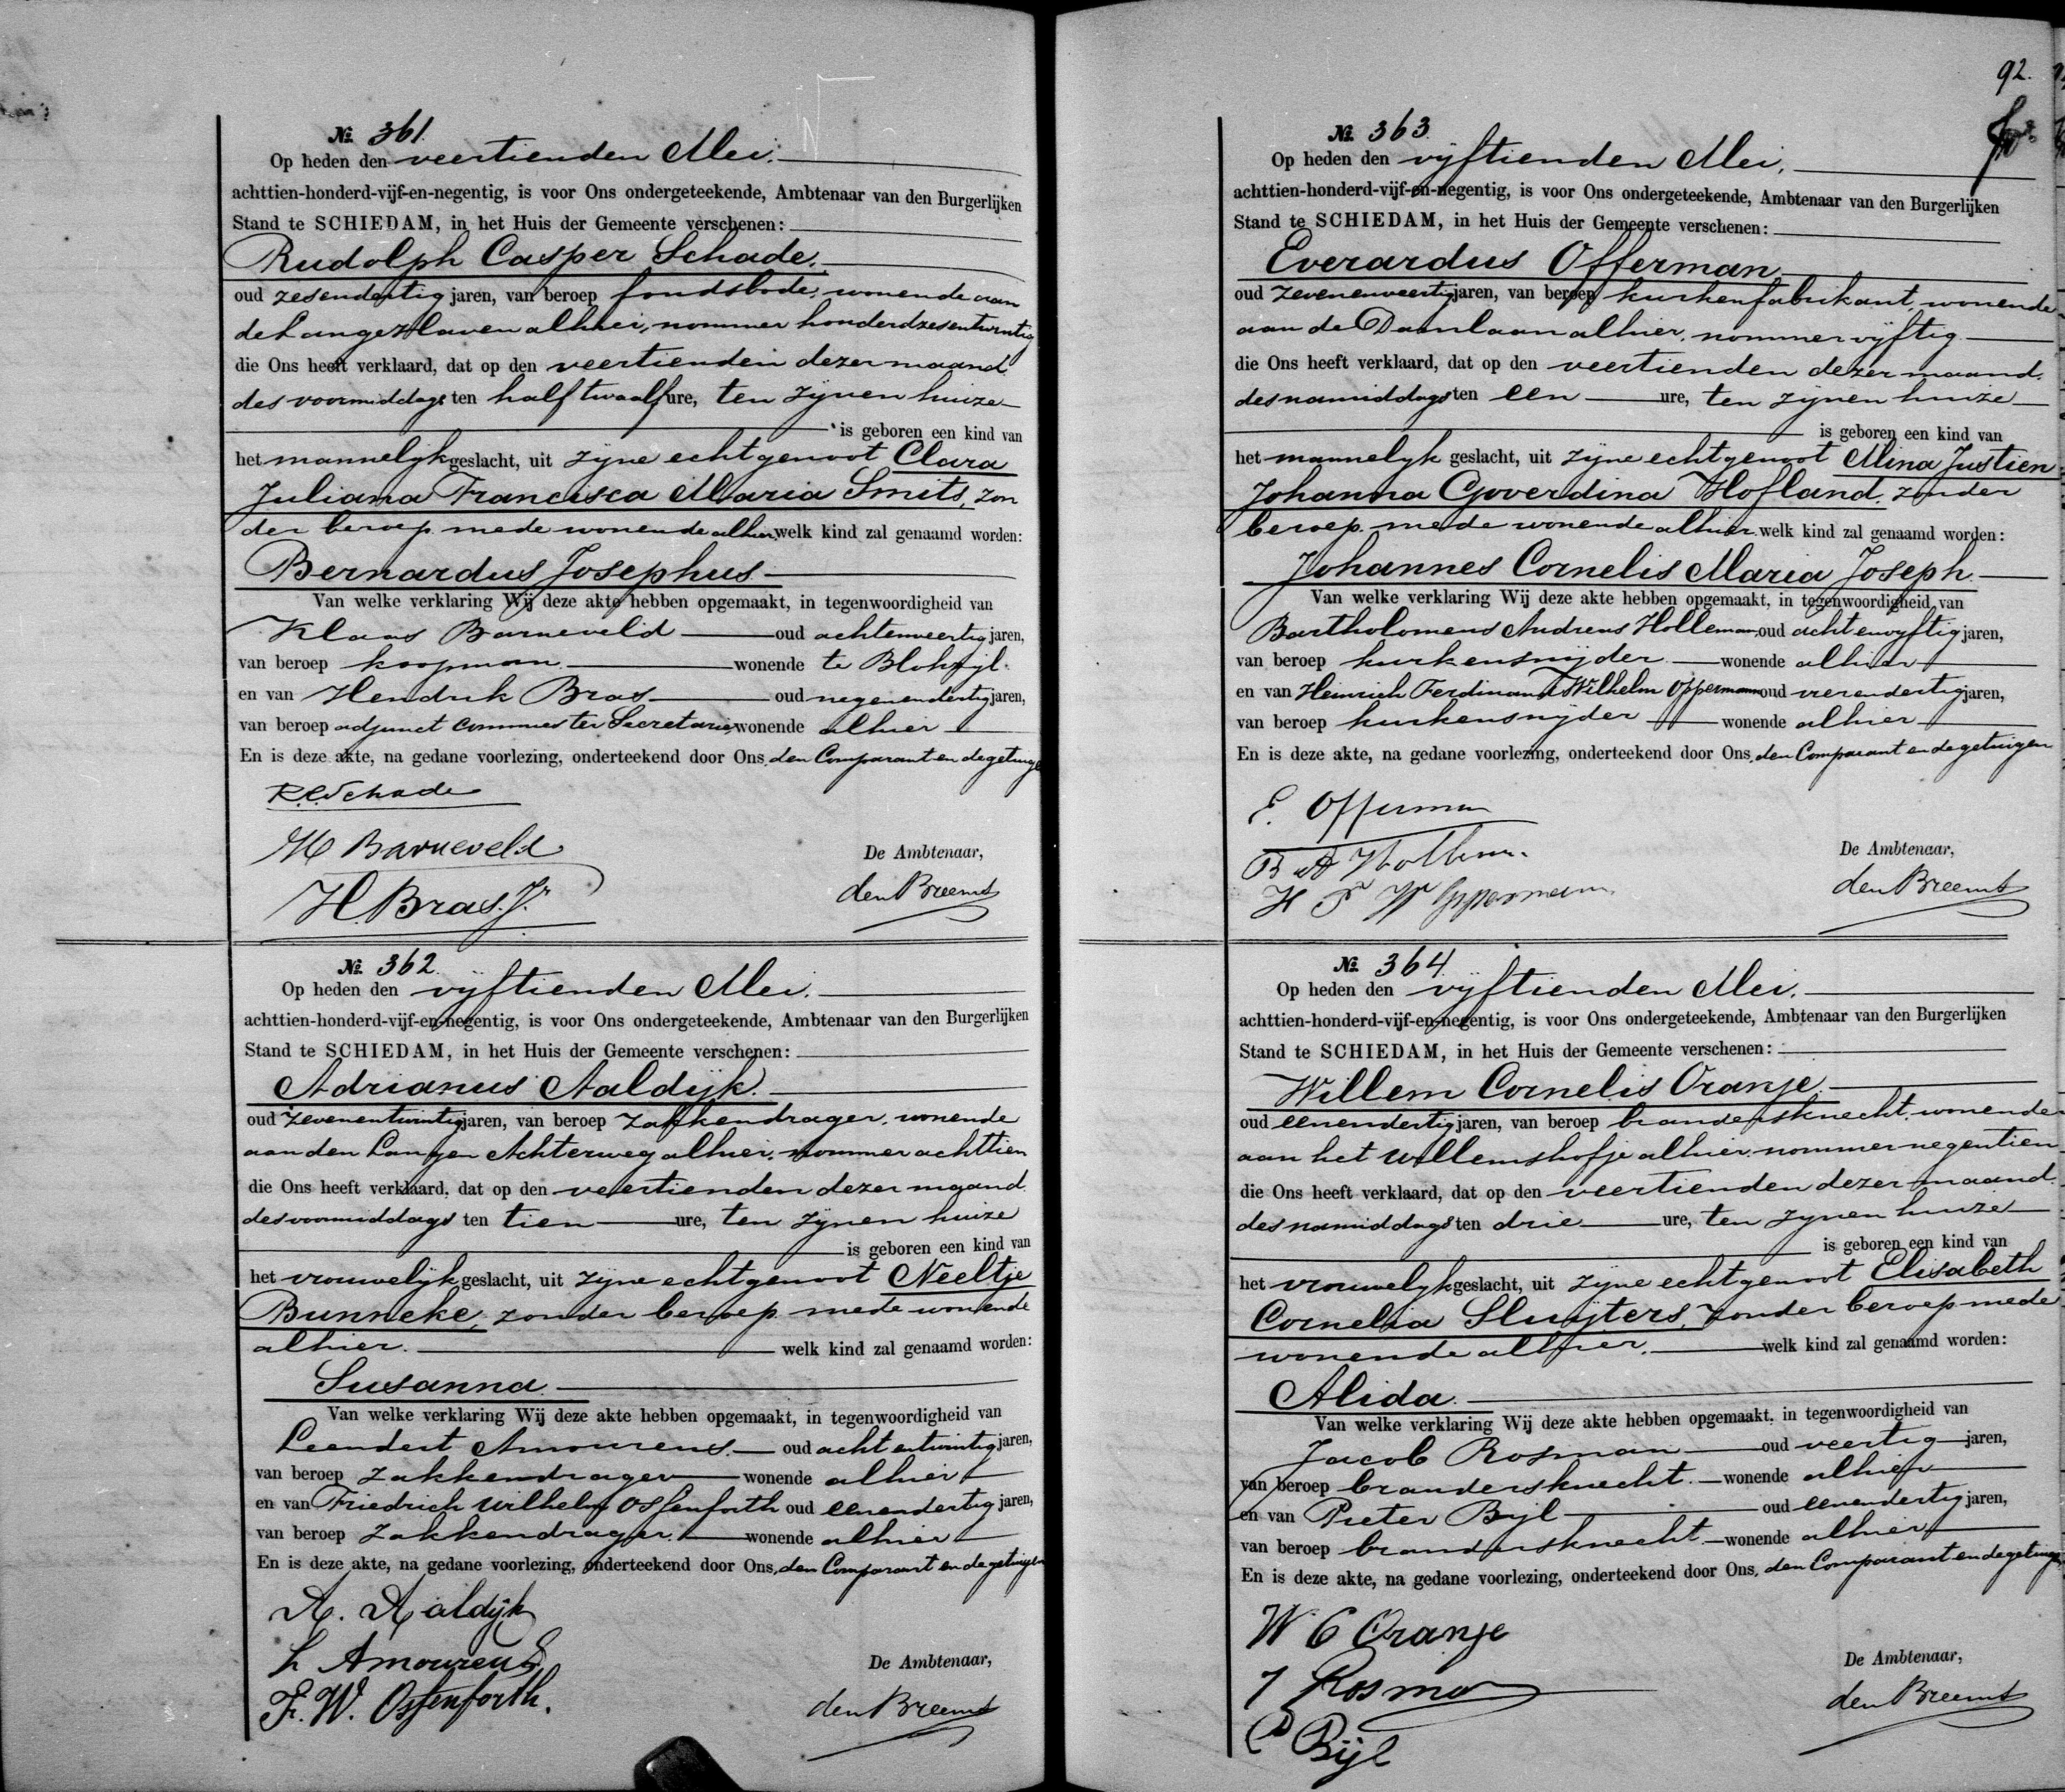 № 361.
Op heden den veertienden Mei.
achttien-honderd-vijf-en-negentig, is voor Ons ondergeteekende, Ambtenaar van den Burgerlijken
Stand te SCHIEDAM, in het Huis der Gemeente verschenen:
Rudolph Casper Schade.
oud zesendertig jaren, van beroep fondsbode, wonende aan
de Lange Haven alhier, nommer honderdzesentwintig
die Ons heeft verklaard, dat op den veertienden dezer maand
des voormiddags ten half twaalf ure, ten zijnen huize
is geboren een kind van
het mannelijk geslacht, uit zijne echtgenoot Clara
Juliana Francisca Maria Smits, zon
der beroep mede wonende alhier, welk kind zal genaamd worden:
Bernardus Josephus
Van welke verklaring Wij deze akte hebben opgemaakt, in tegenwoordigheid van
Klaas Barneveld oud achtenveertig jaren,
van beroep koopman wonende te Blokzijl
en van Hendrik Bras oud negenendertig jaren,
van beroep adjunct commies ter Secretarie, wonende alhier
En is deze akte, na gedane voorlezing, onderteekend door Ons, den Comparant en de getuigen
R.C. Schade
K Barneveld
H. Bras Jr.
De Ambtenaar,
den Breems
№ 362.
Op heden den vijftienden Mei.
achttien-honderd-vijf-en-negentig, is voor Ons ondergeteekende, Ambtenaar van den Burgerlijken
Stand te SCHIEDAM, in het Huis der Gemeente verschenen:
Adrianus Aaldijk.
oud zevenentwintig jaren, van beroep zakkendrager, wonende
aan den Langen Achterweg alhier, nommer achttien
die Ons heeft verklaard, dat op den veertienden dezer maand
des voormiddags ten tien ure, ten zijnen huize
is geboren een kind van
het vrouwelijk geslacht, uit zijne echtgenoot Neeltje
Bunneke, zonder beroep mede wonende
alhier. welk kind zal genaamd worden:
Susanna
Van welke verklaring Wij deze akte hebben opgemaakt, in tegenwoordigheid van
Leendert Amourens oud acht entwintig jaren,
van beroep zakkendrager wonende alhier
en van Friedrich Wilhelm Ossenforth oud eenendertig jaren,
van beroep zakkendrager wonende alhier
En is deze akte, na gedane voorlezing, onderteekend door Ons, den Comparant en de getuigen
A. Aaldijk
L Amourens
F. W. Ossenforth.
De Ambtenaar,
den Breems
92.
№ 363.
Op heden den vijftienden Mei.
achttien-honderd-vijf-en-negentig, is voor Ons ondergeteekende, Ambtenaar van den Burgerlijken
Stand te SCHIEDAM, in het Huis der Gemeente verschenen:
Everardus Offerman
oud zevenenveertig jaren, van beroep kurkenfabrikant, wonende
aan de Damlaan alhier, nommer vijftig
die Ons heeft verklaard, dat op den veertienden dezer maand.
des namiddags ten een ure, ten zijnen huize
is geboren een kind van
het mannelijk geslacht, uit zijne echtgenoot Mina Justien
Johanna Goverdina Hofland, zonder
beroep mede wonende alhier welk kind zal genaamd worden:
Johannes Cornelis Maria Joseph
Van welke verklaring Wij deze akte hebben opgemaakt, in tegenwoordigheid van
Bartholomeus Andreas Holleman, oud acht envijftig jaren,
van beroep kurkensnijder wonende alhier
en van Heinrich Ferdinand Wilhelm Oppermann oud vierendertig jaren,
van beroep kurkensnijder wonende alhier
En is deze akte, na gedane voorlezing, onderteekend door Ons, den Comparant en de getuigen
E. Offerman
B A Holleman
H F W Oppermann
De Ambtenaar,
den Breems
№ 364.
Op heden den vijftienden Mei.
achttien-honderd-vijf-en-negentig, is voor Ons ondergeteekende, Ambtenaar van den Burgerlijken
Stand te SCHIEDAM, in het Huis der Gemeente verschenen:
Willem Cornelis Oranje
oud eenendertig jaren, van beroep brandersknecht, wonende
aan het Willemshofje alhier, nommer negentien
die Ons heeft verklaard, dat op den veertienden dezer maand.
des namiddags ten drie ure, ten zijnen huize
is geboren een kind van
het vrouwelijk geslacht, uit zijne echtgenoot Elisabeth
Cornelia Sluijters, zonder beroep mede
wonende alhier. welk kind zal genaamd worden:
Alida.
Van welke verklaring Wij deze akte hebben opgemaakt, in tegenwoordigheid van
Jacob Rosman oud veertig jaren,
van beroep brandersknecht. wonende alhier
en van Pieter Bijl oud eenendertig jaren,
van beroep brandersknecht wonende alhier
En is deze akte, na gedane voorlezing, onderteekend door Ons, den Comparant en de getuigen
W C Oranje
J Rosman
P Bijl
De Ambtenaar,
den Breems